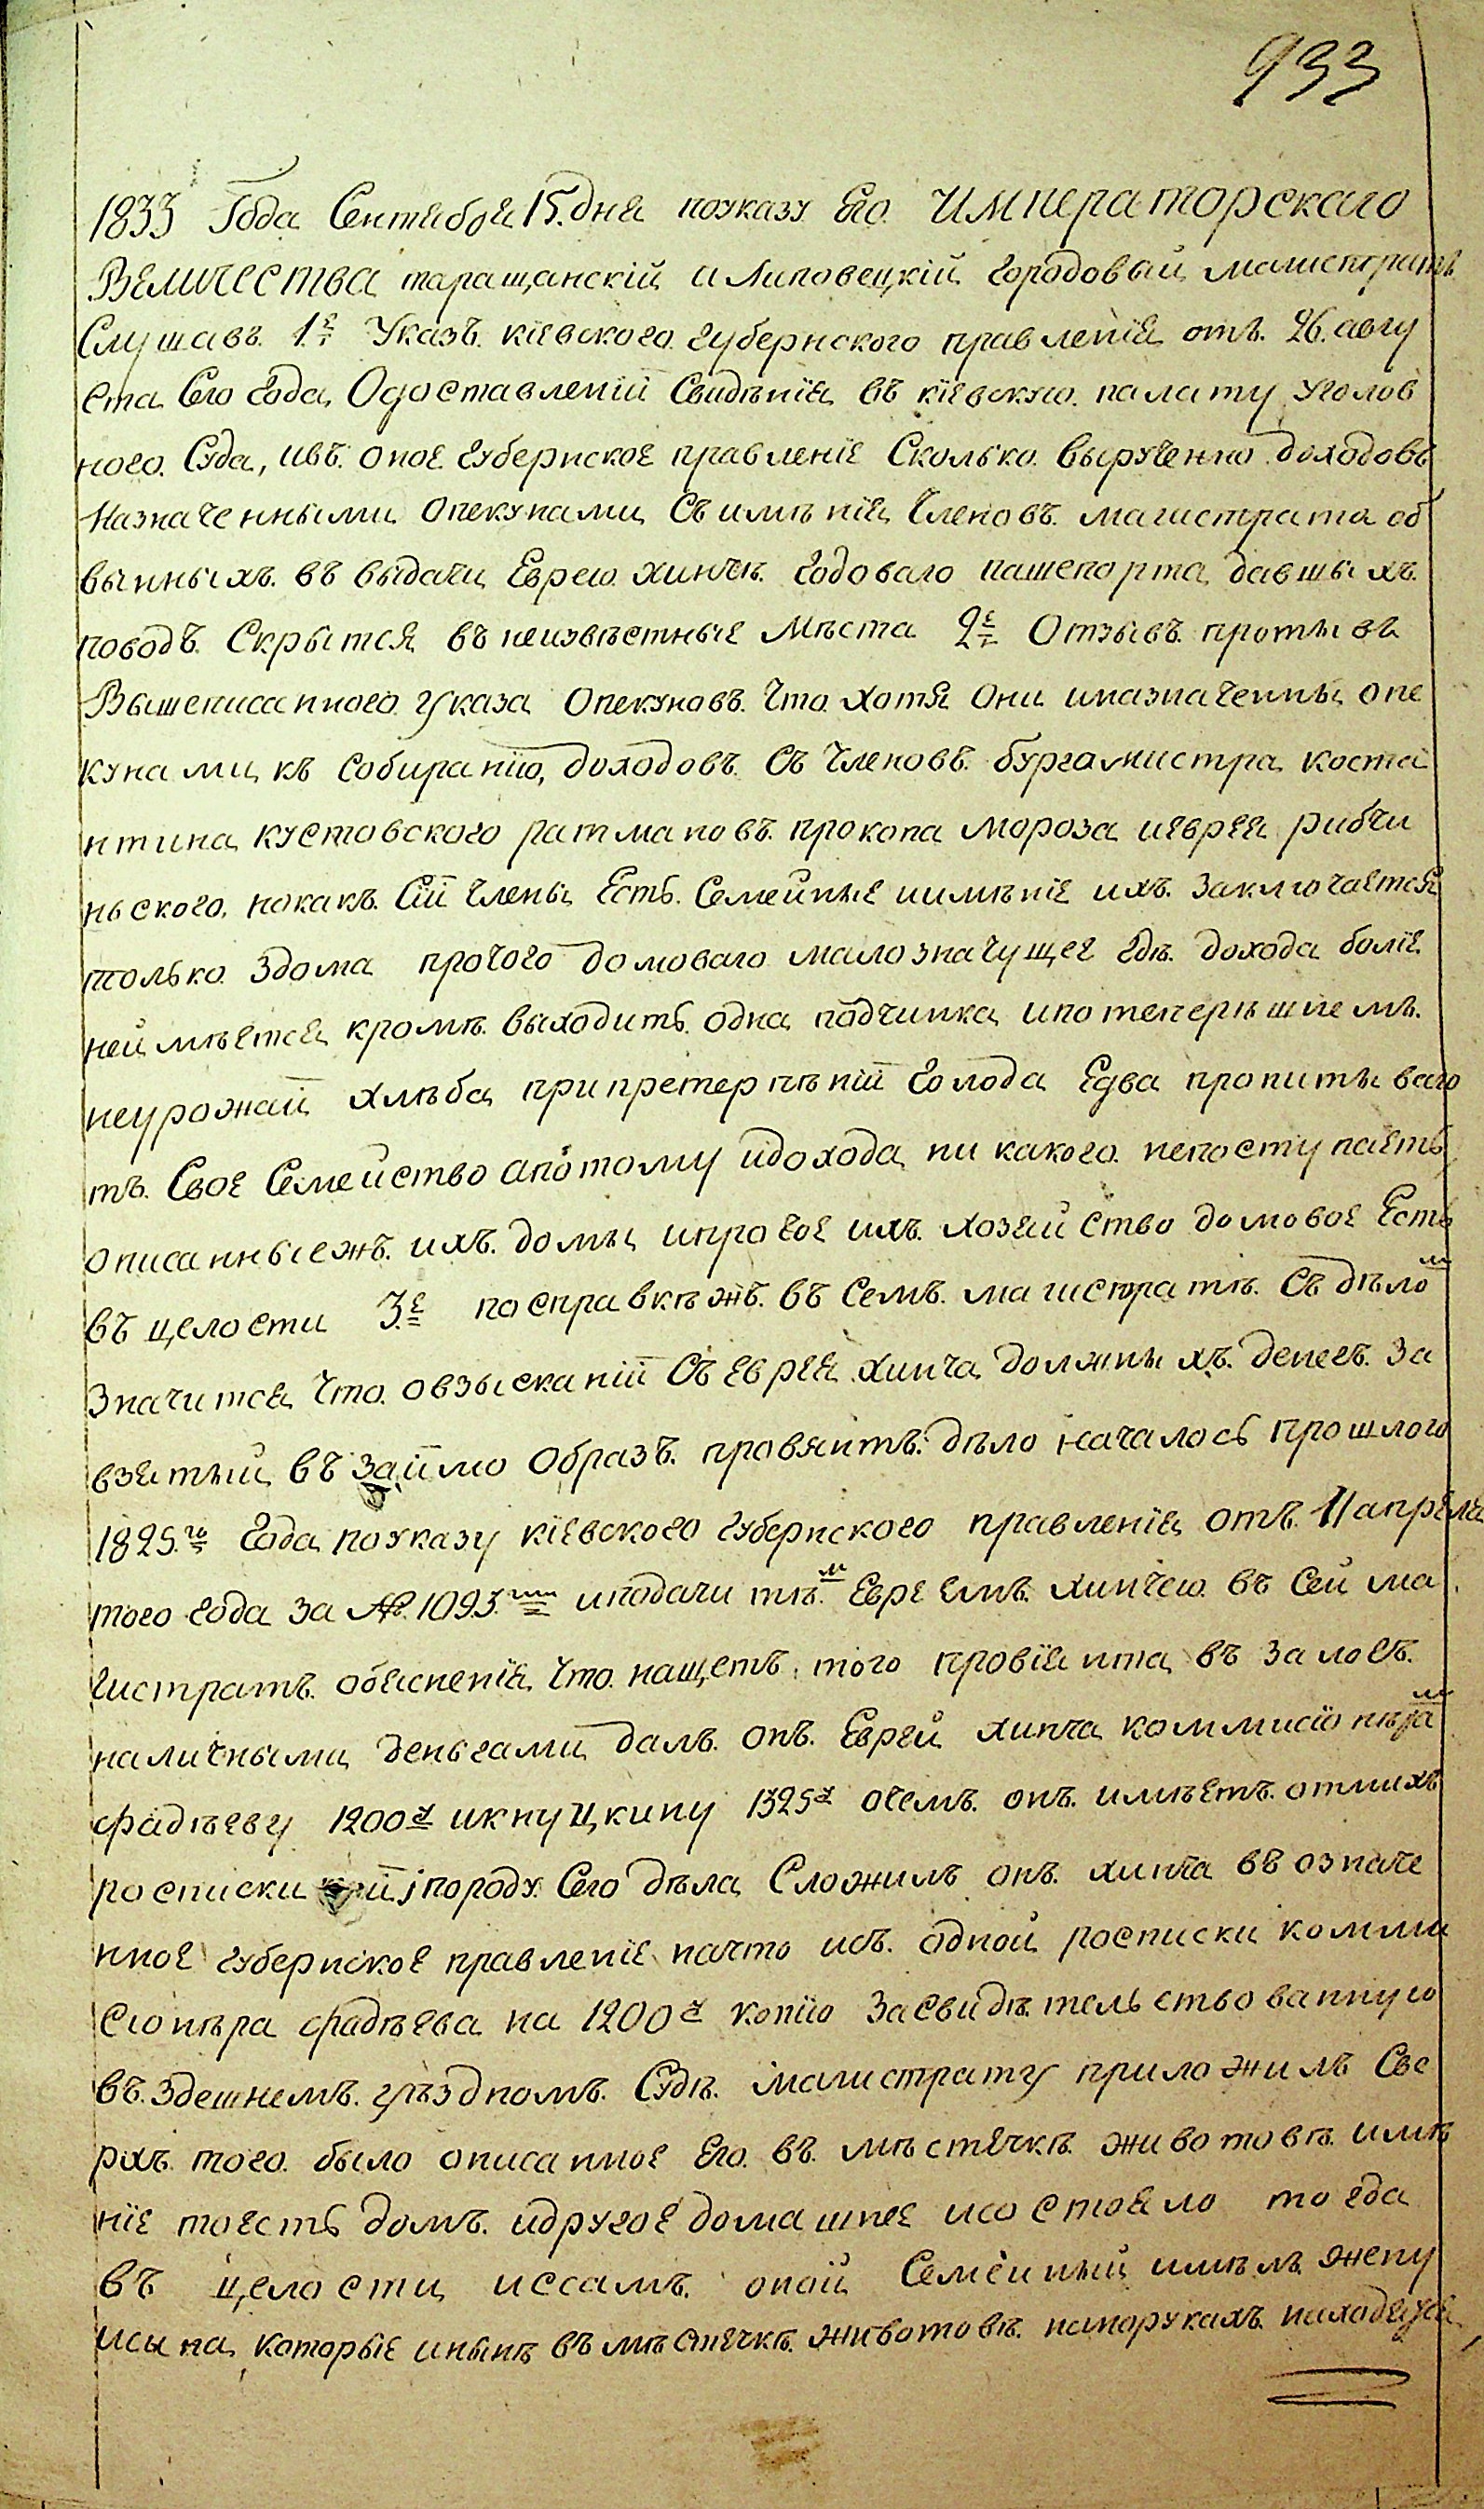 933
1833 Года Сентября 15. дня поуказу Его. Императорскаго
Величества таращанскій илиповецкій городовый магистратъ
Слушавъ. 1.е Указъ. кіевского. губернского правленія отъ. 26. авгу
ста Сего года, Одоставленіи Свидѣнія въ кіевскую. палату Уголов
ного. Суда, ивъ. оное губернское правленіе Сколько. вырученно доходовъ
Назначенными опекунами Съимѣнія Членовъ. магистрата об
вынныхъ. въ выдачи Еврею. хинчѣ. годоваго пашепорта, давшыхъ.
поводъ. Скрытся въ неизвѣстные Мѣста 2е Отзывъ. протывъ
Вышеписанного. указа опекуновъ. Что. хотя они иназначенны опе
кунами къ собиранію, доходовъ. Съ Членовъ. бургамистра коста
нтина кустовского ратмановъ. прокопа мороза иеврея рибчи
нского, нокакъ. Сіи Члены Есть. Семейные иимѣніе ихъ. заключается
только. здома прочого домоваго малозначущее гдѣ. дохода боліе
неимѣется кромѣ. выходить. одна пόдчинка ипотеперѣшнемъ.
неурожаи хлѣба припретерпѣніи голода Едва пропитываю
тъ. Свое Семейство апотому идохода ни какого. непоступаетъ
описанныежъ. ихъ. домы ипрочое ихъ. хозяйство домовое Есть
въ целости 3.е посправкѣжъ. въ Семъ. магистратѣ. Съ дѣлом
значится Что. овзысканіи Съ еврея хинча должныхъ. денегъ. за
взятый въ займо образъ. провянтъ. дѣло началось прошлого
1825.го года поуказу кіевского губернского правленія отъ. 11 апреля
того года за №. 1093. иподачи тѣм Евреемъ. хинчею. въ Сей ма
гистратъ. объясненія, Что. нащетъ. того провіянта въ залогъ.
наличными деньгами далъ. онъ. Еврей хинча коммисіонѣрам
фадѣеву 1200 икнуцкину 1325 очемъ. онъ. имѣетъ. отнихъ
росписки породу. Сего дѣла Сложилъ онъ. хинча въ означе
нное губернское правленіе начто изъ. одной росписки комми
сіонѣра фадѣева на 1200 копію засвидѣтельствованную
въ. здешнемъ. уѣздномъ. Судѣ. імагистрату приложилъ Све
рхъ. того. было описанное Его. въ. мѣстѣчкѣ. животовѣ. имѣ
ніе тоесть домъ. идругое домашнее исостояло тогда
въ целости иссамъ. оной Семейный имѣлъ жену
исына которые инынѣ въ мѣстечкѣ. животовѣ. напорукахъ. находятся